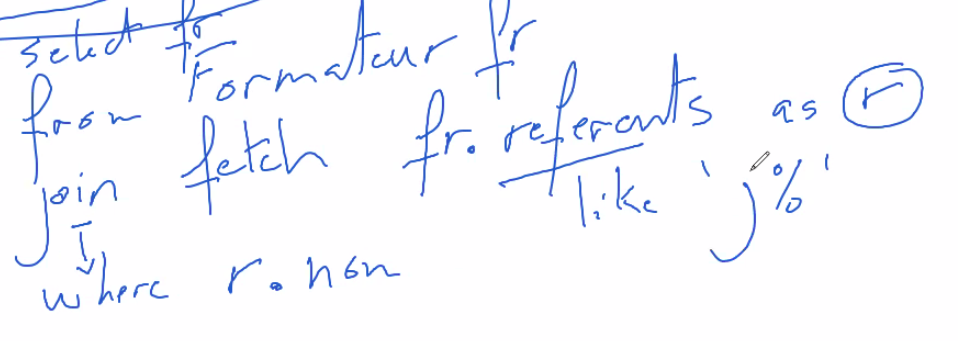 select fr
from Formateur fr
join fetch fr.referents as r
where r.nom like 'j%'